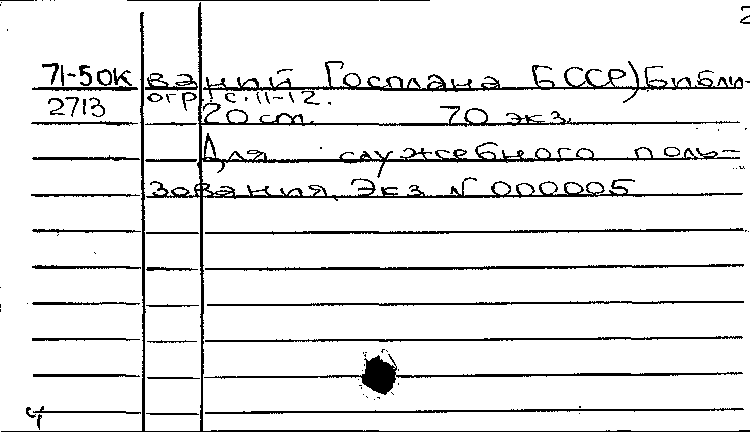 2
71-5ОК ваний Госплана БССР) Библи-
2713 огр.: с. 11-12.
20 см. 70 экз.
Для служебного поль=
зования. Экз N 000005
ч